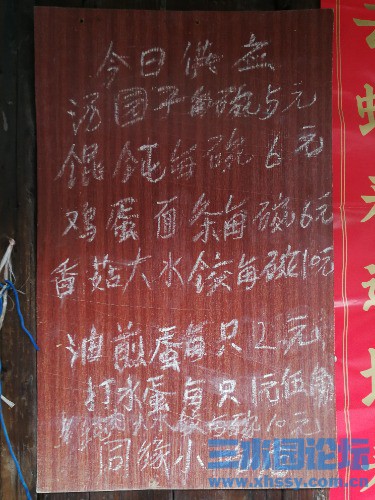 今日供应
汤团子每碗5元
馄饨每碗6元
鸡蛋面条每碗6元
香菇大水饺每碗10元
油煎蛋每只2元
打水蛋每只1元伍角
大水饺每碗10元
同缘小
三水间论坛